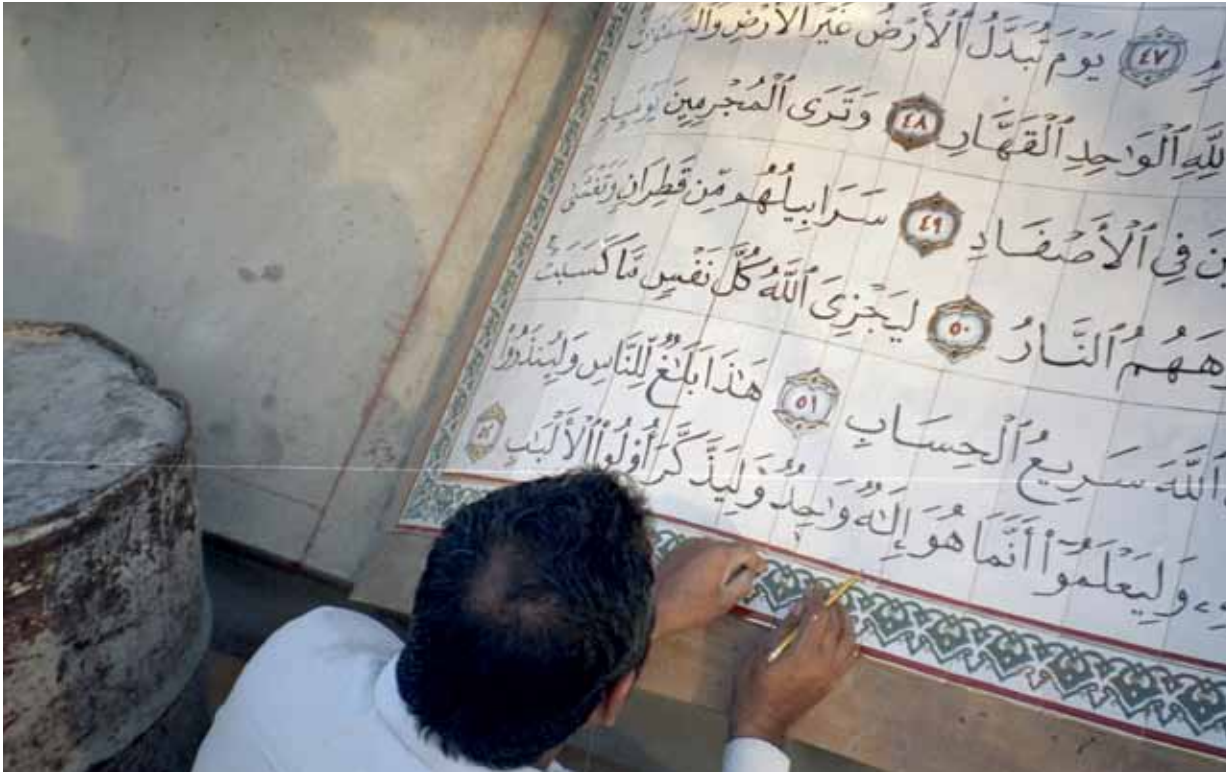 ٤٧ يَوْمَ تُبَدَّلُ ٱلْأَرْضُ غَيْرَ ٱلْأَرْضِ وَٱلسَّمَٰوَٰتُ
لِلَّهِ ٱلْوَٰحِدِ ٱلْقَهَّارِ ٤٨ وَتَرَى ٱلْمُجْرِمِينَ يَوْمَئِذٍ
فِى ٱلْأَصْفَادِ ٤٩ سَرَابِيلُهُم مِّن قَطِرَانٍ وَتَغْشَىٰ
ٱلنَّارُ ٥٠ لِيَجْزِىَ ٱللَّهُ كُلَّ نَفْسٍ مَّا كَسَبَتْ
ٱللَّهَ سَرِيعُ ٱلْحِسَابِ ٥١ هَٰذَا بَلَٰغٌ لِّلنَّاسِ وَلِيُنذَرُوا۟
وَلِيَعْلَمُوٓا۟ أَنَّمَا هُوَ إِلَٰهٌ وَٰحِدٌ وَلِيَذَّكَّرَ أُو۟لُوا۟ ٱلْأَلْبَٰبِ ٥٢